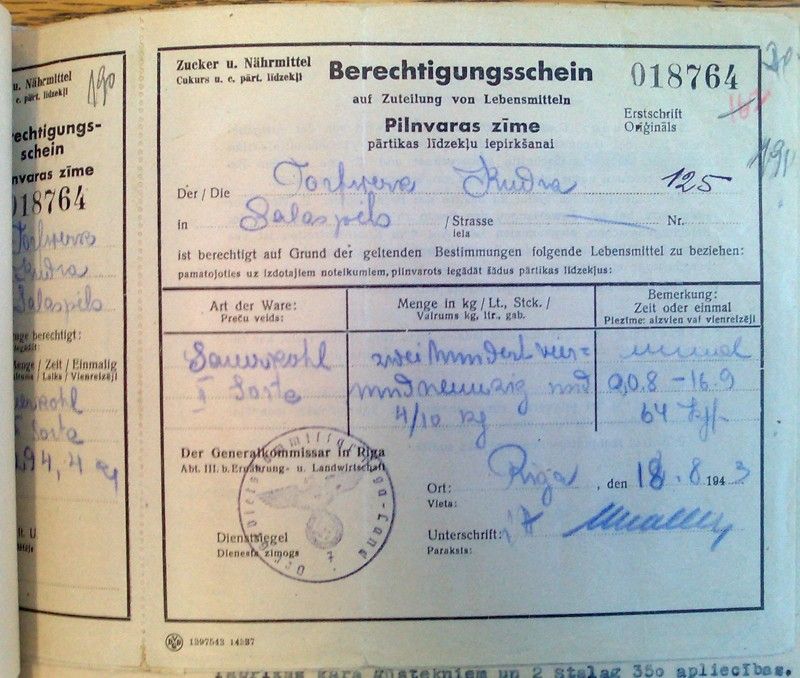 u. Nährmittel
c. pārt. līdzekļi
190
echtigungs-
schein
nvaras zīme
18764
Torfwerk
Kudra
Salaspils
berechtigt:
Zeit / Einmalig
Laiks / Vienreizēji
Sorte
94,4 kg
Zucker u. Nährmittel
Cukurs u. c. pārt. līdzekļi
Berechtigungsschein
018764
auf Zuteilung von Lebensmitteln
Erstschrift
Oriģināls
162
Pilnvaras zīme
pārtikas līdzekļu iepirkšanai
190
Der / Die Torfwerk Kudra 125
in Salaspils / Strasse Nr.
iela
ist berechtigt auf Grund der geltenden Bestimmungen folgende Lebensmittel zu beziehen:
pamatojoties uz izdotajiem noteikumiem, pilnvarots iegādāt šādus pārtikas līdzekļus:
Art der Ware: Menge in kg / Lt., Stck. / Bemerkung:
Preču veids: Vairums kg, ltr., gab. Zeit oder einmal
Piezīme: aizvien vai vienreizēji
Sauerkohl zweihundert vier= einmal
II Sorte undneunzig und 20.8 - 16.9
4/10 kg 64 Kgf.
Der Generalkommissar in Riga
Abt. III. b. Ernährung- u. Landwirtschaft
Ort: Riga, den 18.8.1943
Vieta:
Dienstsiegel Unterschrift:
Dienesta zīmogs Paraksts:
Der Gebietskommissar Riga-Land
1397543 14337
un 2 Stalag 350 apliecības.